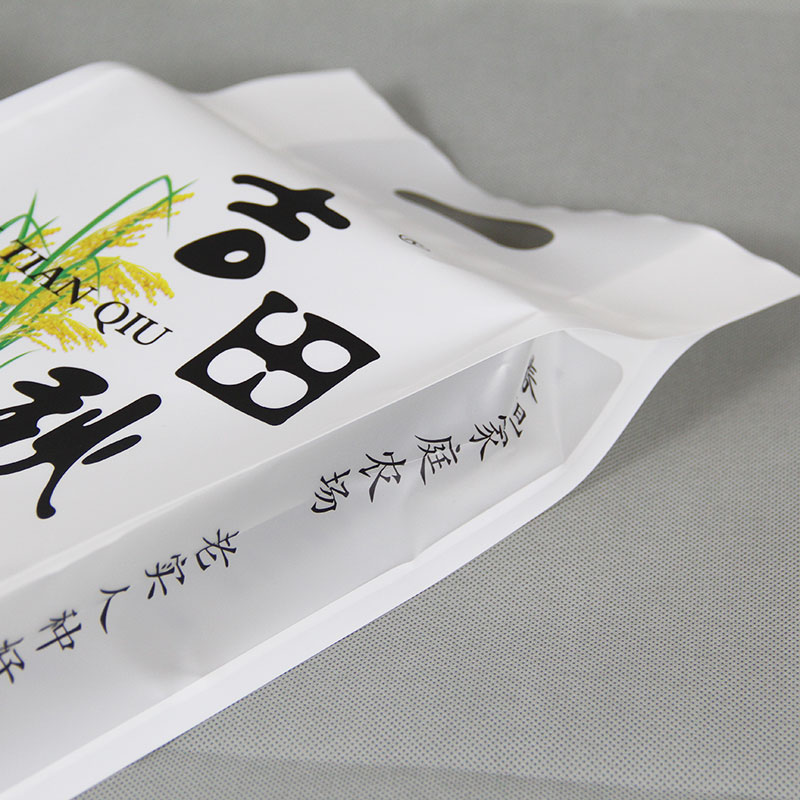 田
秋
TIAN QIU
家庭农场
老实人种好